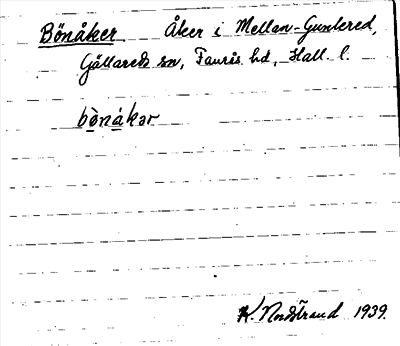 Bönåker Åker i Mellan-Guntered,
Gällareds sn, Faurås hd, Hall. l.
bònåkər
K. Nordstrand 1939.